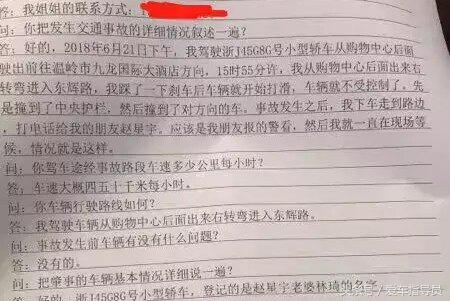 答：我姐姐的联系方式：1
问：你把发生交通事故的详细情况叙述一遍？
答：好的，2018年6月21日下午，我驾驶浙J45G8G号小型轿车从购物中心后面
驶出前往温岭市九龙国际大酒店方向，15时55分许，我从购物中心后面出来右
转弯进入东辉路，我踩了一下刹车后车辆就开始打滑，车辆就不受控制了。先
是撞到了中央护栏，然后撞到了对方向的车。事故发生之后，我下车走到路边
，打电话给我的朋友赵星宇。应该是我朋友报的警看，然后我就一直在现场等
候，情况就是这样。
问：你驾车途经事故路段车速多少公里每小时？
答：车速大概四五十千米每小时。
问：你车辆行驶路线如何？
答：我驾驶车辆从购物中心后面出来右转弯进入东辉路。
问：事故发生前车辆有没有什么问题？
答：没有的。
问：把肇事的车辆基本情况详细说一遍？
答：好的，浙J45G8G号小型轿车，登记的是赵星宇老婆林琦的名字
头条号／爱车指导员